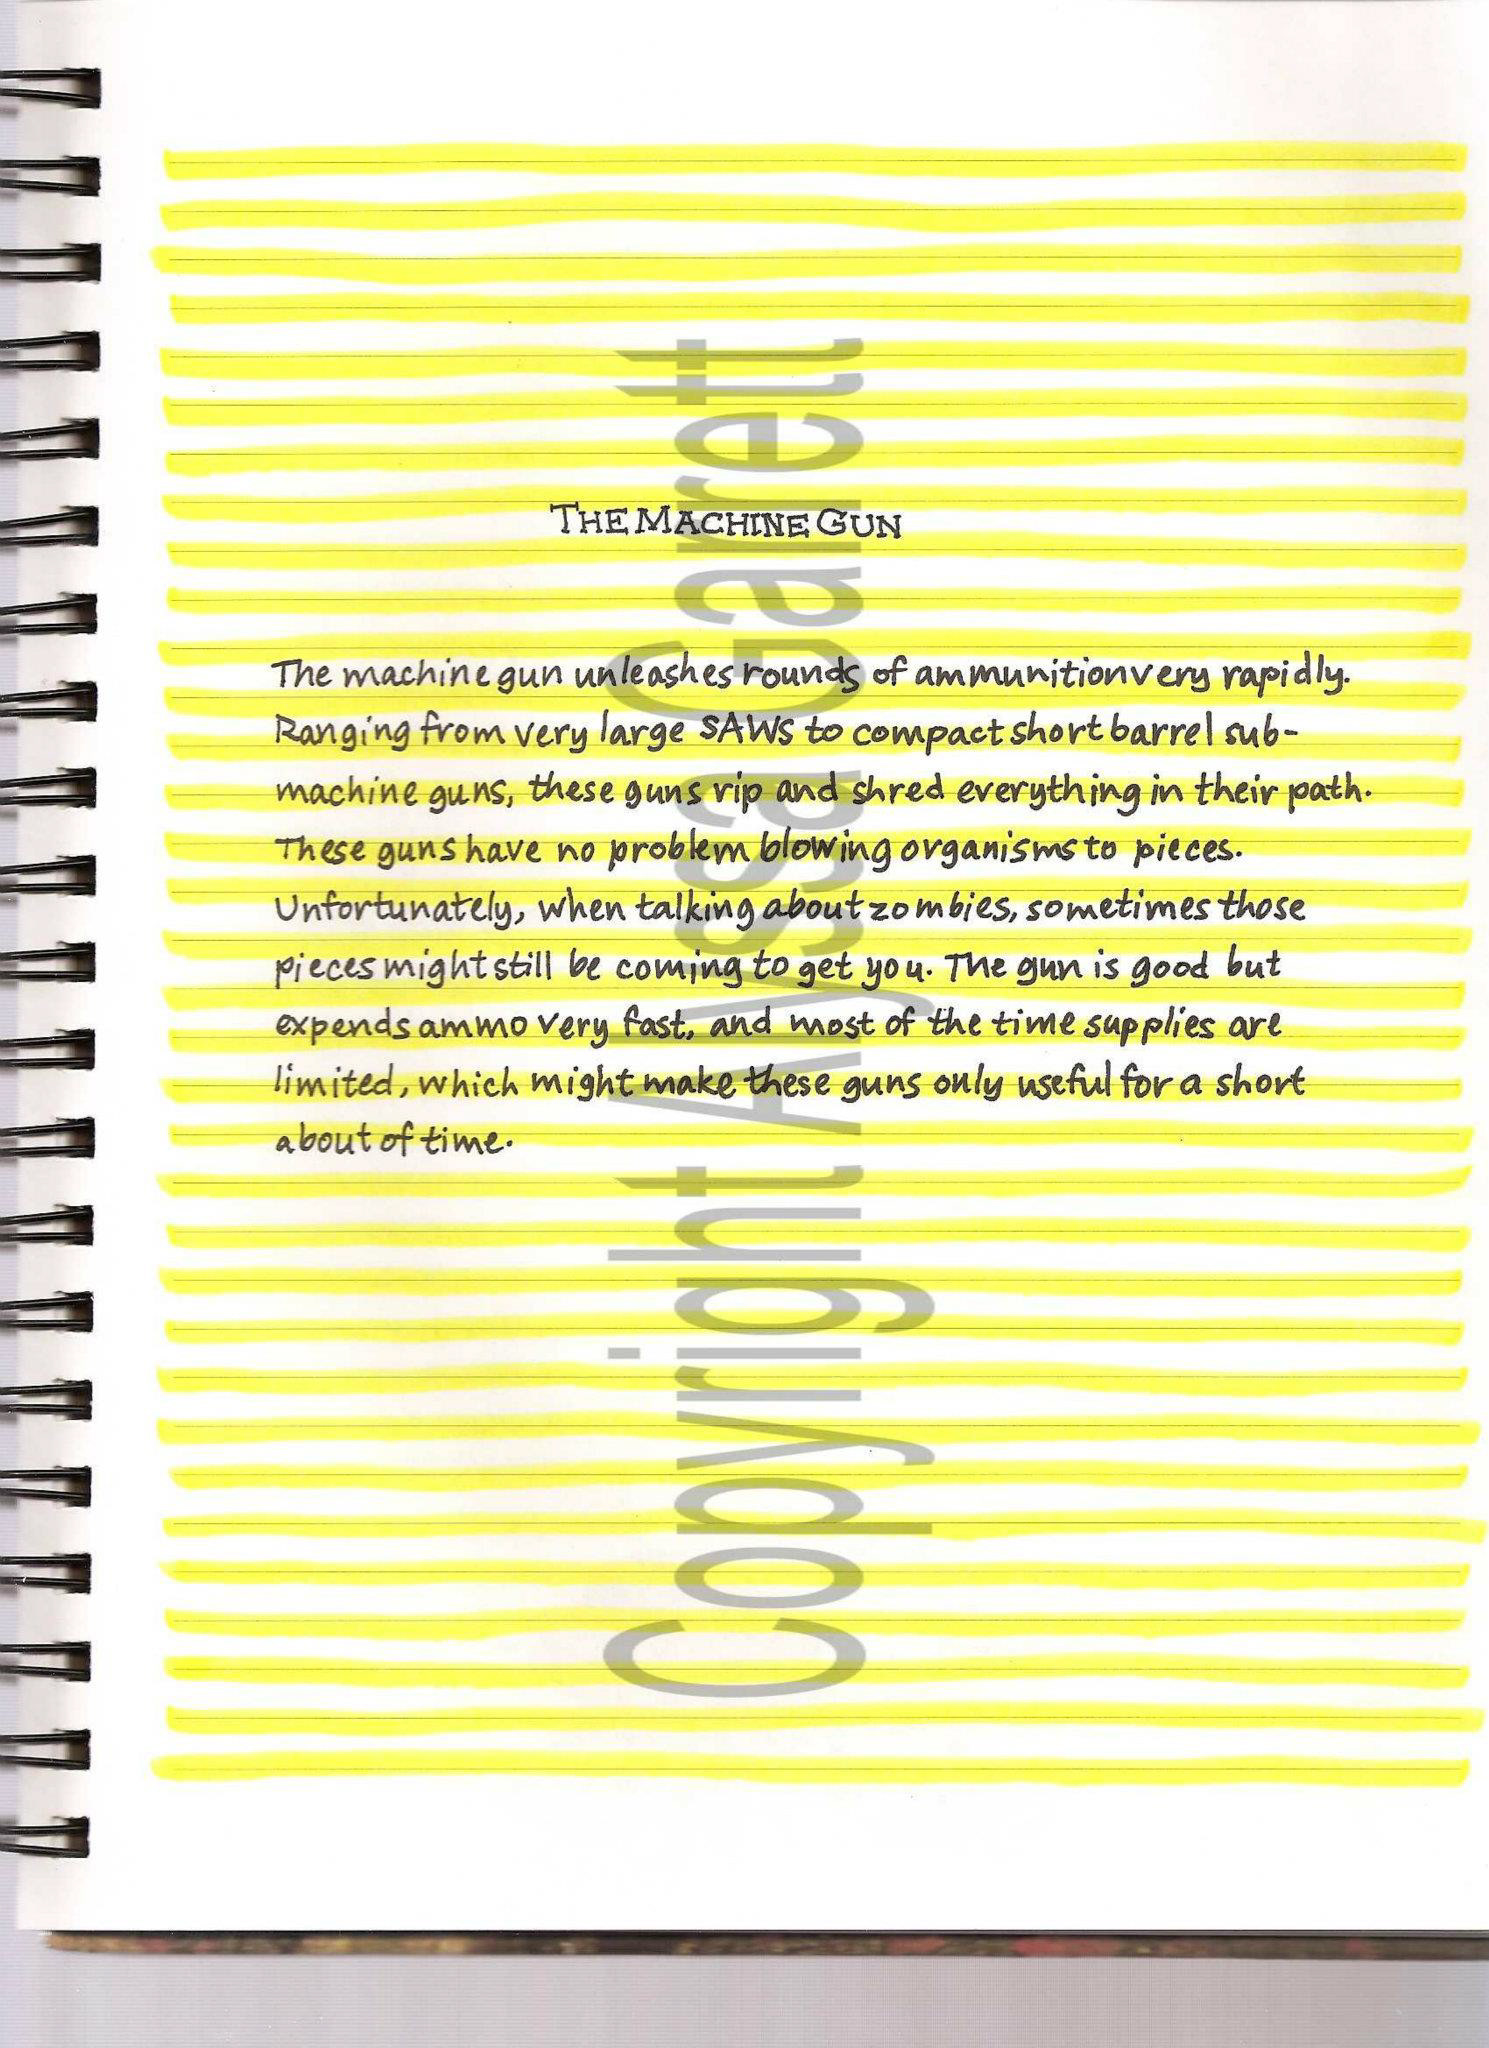 THE MACHINE GUN
The machine gun unleashes rounds of ammunition very rapidly.
Ranging from very large SAWS to compact short barrel sub-
machine guns, these guns rip and shred everything in their path.
These guns have no problem blowing organisms to pieces.
Unfortunately, when talking about zombies, sometimes those
pieces might still be coming to get you. The gun is good but
expends ammo very fast, and most of the time supplies are
limited, which might make these guns only useful for a short
about of time.
Copyright Alyssa Garrett